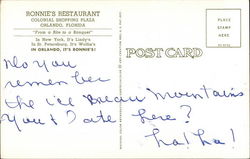 RONNIE'S RESTAURANT
COLONIAL SHOPPING PLAZA
ORLANDO, FLORIDA
"From a Bite to a Banquet"
In New York, It's Lindy's
In St. Petersburg, It's Wolfie's
IN ORLANDO, IT'S RONNIE'S!
POST CARD
Do you
remember
the ice cream mountains
you & I ate here?
ha! ha!